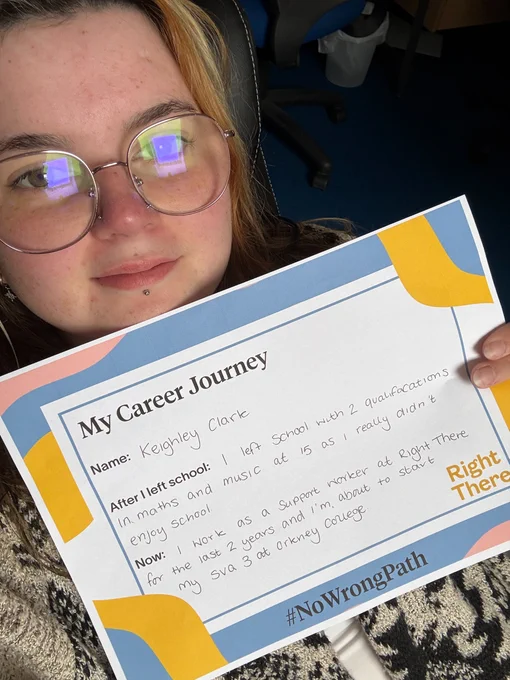 My Career Journey
Name: Keighley Clark
After I left school: I left school with 2 qualifacations
in maths and music at 15 as I really didn't
enjoy school
Now: I work as a support worker at Right There
for the last 2 years and I'm about to start
my SVQ 3 at Orkney College
Right
There
#NoWrongPath